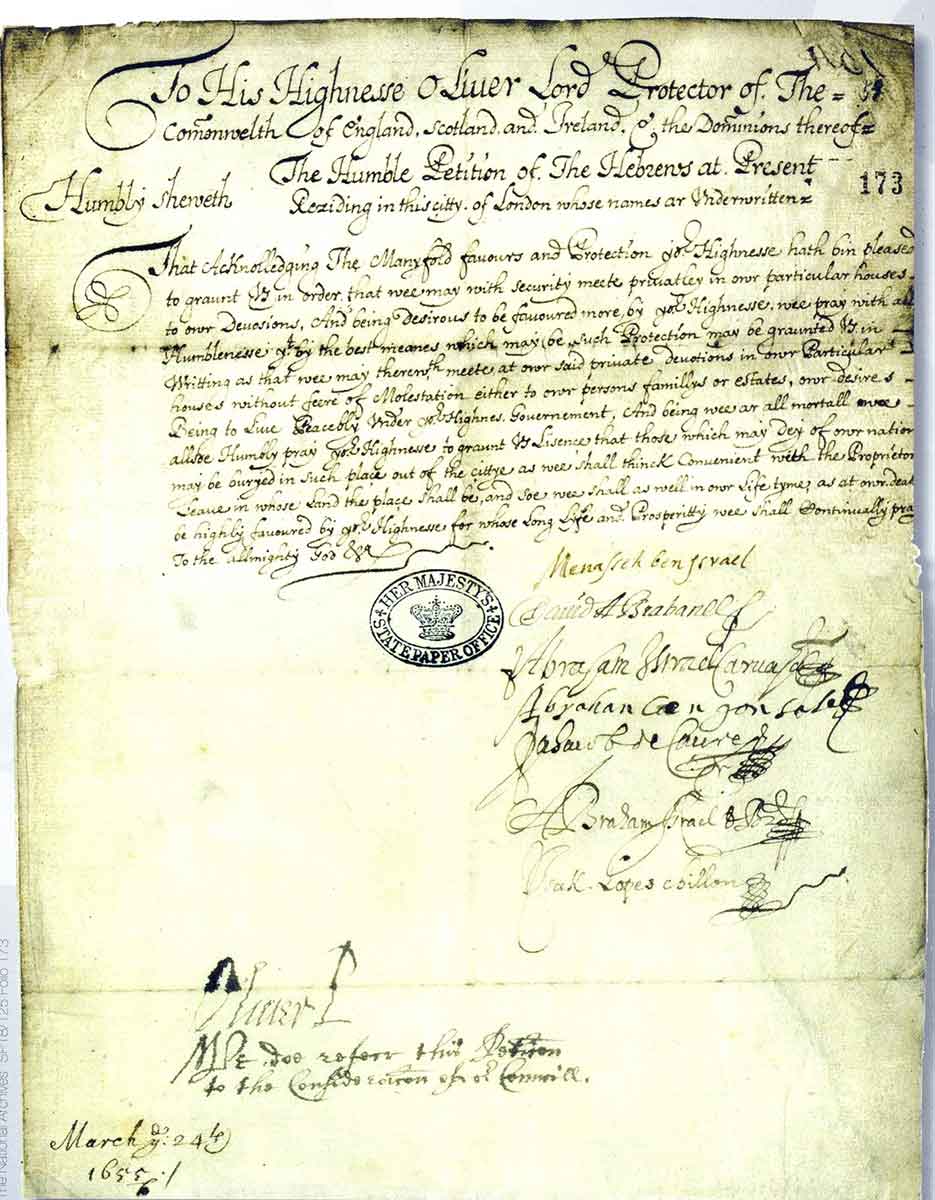 To His Highnesse Oliver Lord Protector of The=
Comonwelth of England, Scotland and Ireland, & the Dominions thereof=
The Humble Petition of The Hebrews at Present
Reziding in this citty of London whose names ar Underwritten=
Humbly sheweth
173
That Acknolledging The Manyfold favours and Protection yor Highnesse hath bin pleased
to graunt Us in order that wee may with security meete privatley in owr particular houses
to owr Devosions, And being desirous to be favoured more by yor Highnesse, wee pray with all
Humblenesse yt by the best meanes which may be such Protection may be graunted Us in
Writting as that wee may therewth meete at owr said private devotions in owr Particular
houses without feere of Molestation either to owr persons famillys or estates, owr desires
Being to Live Peacebly Under yor Highnes Governement, And being wee ar all mortall wee
allsoe Humbly pray yor Highnesse to graunt Us Lisence that those which may dey of owr nation
may be buryed in such place out of the cittye as wee shall thinck Convenient with the Proprietors
Leave in whose Land the place shall be, and soe wee shall as well in owr Life tyme, as at owr death
be highly favoured by yor Highnesse for whose Long Life and Prosperitty wee shall Continually pray
To the allmighty God &c
HER MAJESTY'S
STATE PAPER OFFICE
Menasseh ben Israel
David Abrabanel
Abraham Israel Carvajal
Abraham Coen gonsales
Jahacob de Caceres
Abraham Israel
Isak Lopes Chillon
Oliver P
Wee doe referr this Peticon
to the Consideracon of or Councill.
March ye 24th
1655/6
The National Archives SP18/125 Folio 173